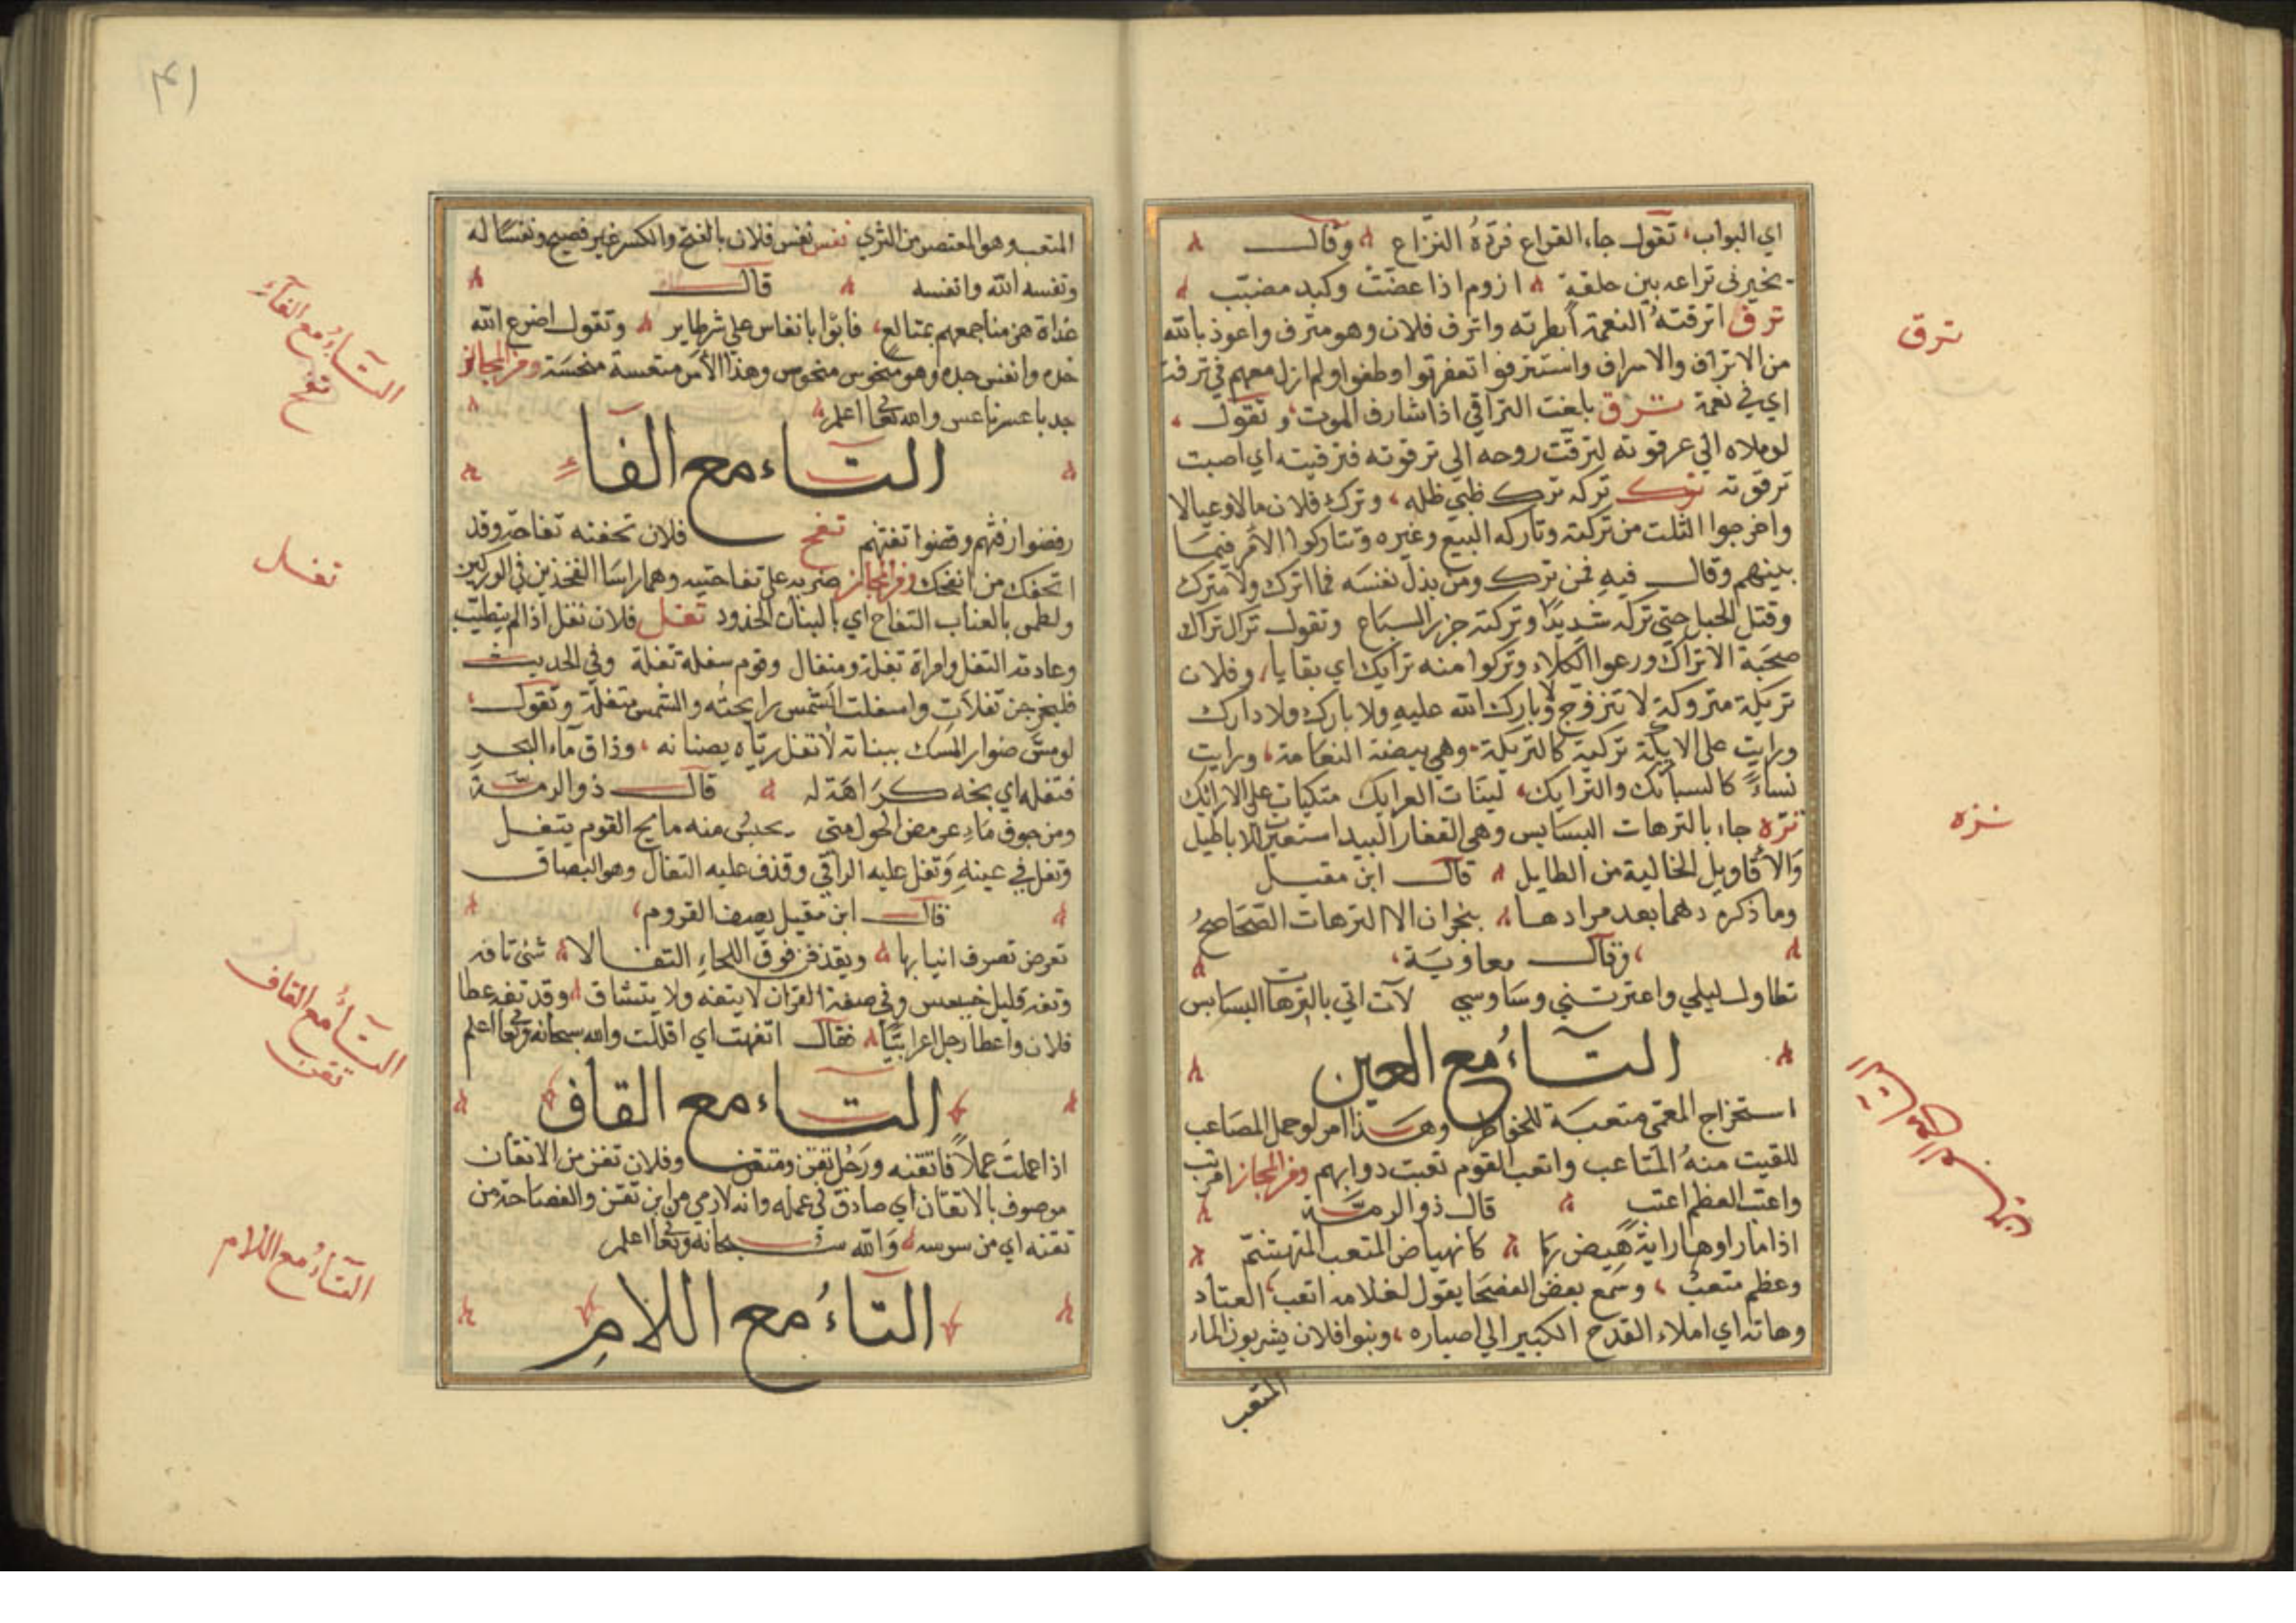 اي البواب، تقول جاء القراع فترّه النزّاع وقال
يخبرني تراعه بين حلقة ازوم اذا عضت وكبد مضبّب
ترف اترفته النعمة ابطرته واترف فلان وهو مترف واعوذ بالله
من الاتراف والاسراف واستترفوا تعفرتوا وطغوا ولم ازل معهم في ترفة
اي في نعمة ترق بلغت التراقي اذا شارف الموت، وتقول
لو ملاه الي عرقوته لترقت روحه الي ترقوته فترقيته اي اصبت
ترقوته ترك تركه ترك ظبي ظله، وترك فلان مالا وعيالا
واخرجوا الثلث من تركته وتاركه البيع وغيره وتتاركوا الامر فيما
بينهم وقال فيه فمن ترك ومن بذل نفسه فما اترك ولا مترك
وفتل الحبل حتي تركه شديدا وتركته جزر السباع وتقول تراك تراك
صحبة الاتراك ورعوا الكلاء وتركوا منه ترايك اي بقايا، وفلان
تريكة متروكة لا تتزوج ولا بارك الله عليه ولا بارك ولا دارك
ورايت علي الايكة تركية كالتريكة وهي بيضة النعامة، ورايت
نساءً كالسبائك والترايك، لينات العرايك متكيات علي الارائك
تره جاء بالترهات البسابس وهي القفار البيد استعيرت للاباطيل
والاقاويل الخالية من الطايل قال ابن مقبل
وما ذكره دهما بعد مرادها بنجران الا الترهات الصحاصح
وقال معاوية،
تطاول ليلي واعترتني وساوسي لآت اتي بالترهات البسابس
التاءُ مع العين
استخراج المعمّي متعبة للخواطر وهذا امر لو حمل المصاعب
للقيت منه المتاعب واتعب القوم تعبت دوابهم ومن المجاز
واعتب العظم اعتب قال ذو الرمة
اذا ما راوها راية هيض بها كانهياض المتعب المتهشم
وعظم متعب، وسمع بعض الفصحا يقول لغلامه اتعب العتاد
وهاته اي املاء القدح الكبير الي اصباره، وبنوا فلان يشربون الماء
المتعب
ترق
تره
٤١
المتعب وهو المعتصر من الثري تعس تعس فلان بالفتح والكسر غير فصيح وتعسًا له
وتعسه الله واتعسه قال
غداة هزمنا جمعهم بمتالع، فآبوا باتعاس علي شر طاير وتقول اضرع الله
خده واتعس جده وهو منحوس متعوس وهذا الامر متعسة منحسة ومن المجاز
جد تاعس ناعس والله تعالي اعلم
التاء مع الفآءِ
رفضوا رفثهم وقضوا تفثهم تفح فلان تحفته تفاحة وقد
اتحفك من اتفحك ومن المجاز ضربه علي تفاحتيه وهما راسا الفخذين في الوركين
ولطمن بالعناب التفاح اي بالبنان الخدود تفل فلان تفل اذا لم يتطيّب
وعادته التفل وامراة تفلة ومتفال وقوم سفلة تفلة وفي الحديث
فليخرجن تفلات واسفلت الشمس رايحته والشمس متفلة وتقول
لو مسّ صوار المسك ببنانه لاتفل رياه بصنانه، وذاق ماء البحر
فتفله اي مجه كراهة له قال ذو الرمة
ومن جوف ماء عرمض الحول متي يحس منه مايح القوم يتفل
وتفل في عينه وتفل عليه الراقي وقذف عليه التفال وهو البصاق
قال ابن مقبل يصف القروم،
تعرض تصرف انيابها ويقذفن فوق اللحاءِ التفالا شئ تافه
وتفه قليل خسيس وفي صفة القران لا يتفه ولا يتشاق وقد تفه عطا
فلان واعطا رجل اعرابيا فقال اتفهت اي اقللت والله سبحانه وتعالي اعلم
التاء مع القاف
اذا عملت عملًا فاتقنه ورجل تقن ومتقن وفلان تقن من الاتقان
موصوف بالاتقان اي صاذق في عمله وانه لارمي من ابن تقن والفصاحة من
تقنه اي من سوسه والله سبحانه وتعالي اعلم
التاءُ مع اللامِ
التاءُ مع الفآءِ
تفح
تفل
التاءُ مع القاف
تقن
التاءُ مع اللام